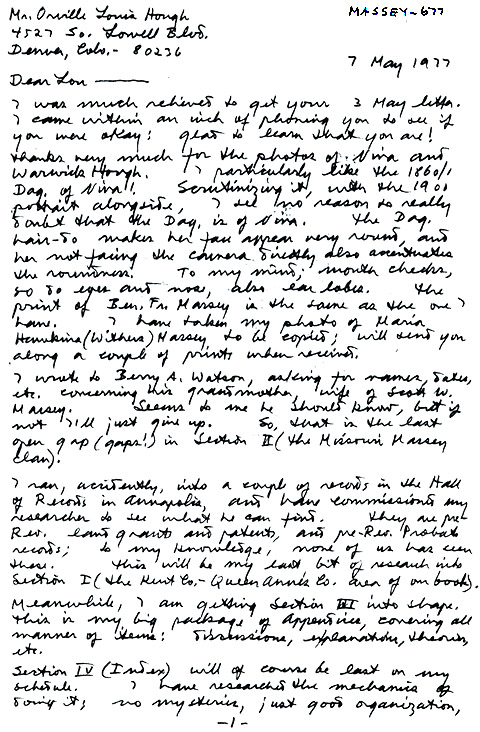 Mr. Orville Louis Hough
MASSEY-677
4527 So. Lowell Blvd.
Denver, Colo.- 80236
7 May 1977
Dear Lou
I was much relieved to get your 3 May letter.
I came within an inch of phoning you to see if
you were okay; glad to learn that you are!
Thanks very much for the photos of Vina and
Warwick Hough. I particularly like the 1860/1
Dag. of Vina! Scrutinizing it, with the 1901
portrait alongside, I see no reason to really
doubt that the Dag. is of Vina. The Dag.
hair-do makes her face appear very round, and
her not facing the camera directly also accentuates
the roundness. To my mind; mouth checks,
so do eyes and nose, also ear lobes. The
print of Ben. Fr. Massey is the same as the one I
have. I have taken my photo of Maria
Hawkins (Withers) Massey to be copied; will send you
along a couple of prints when received.
I wrote to Berry A. Watson, asking for names, dates,
etc. concerning his grandmother, wife of Scott W.
Massey. Seems to me he should know, but if
not I'll just give up. So, that is the last
open gap (gaps!) in Section II (the Missouri Massey
clan).
I ran, accidently, into a couple of records in the Hall
of Records in Annapolis, and have commissioned my
researcher to see what he can find. They are pre-
Rev. land grants and patents, and pre-Rev. Probate
records; to my knowledge, none of us has seen
these. This will be my last bit of research into
Section I (the Kent Co.- Queen Annes Co. area of our book).
Meanwhile, I am getting Section III into shape.
This is my big package of Appendices, covering all
manner of items: discussions, explanation, theories,
etc.
Section IV (Index) will of course be last on my
schedule. I have researched the mechanics of
doing it; no mysteries, just good organization,
-1-